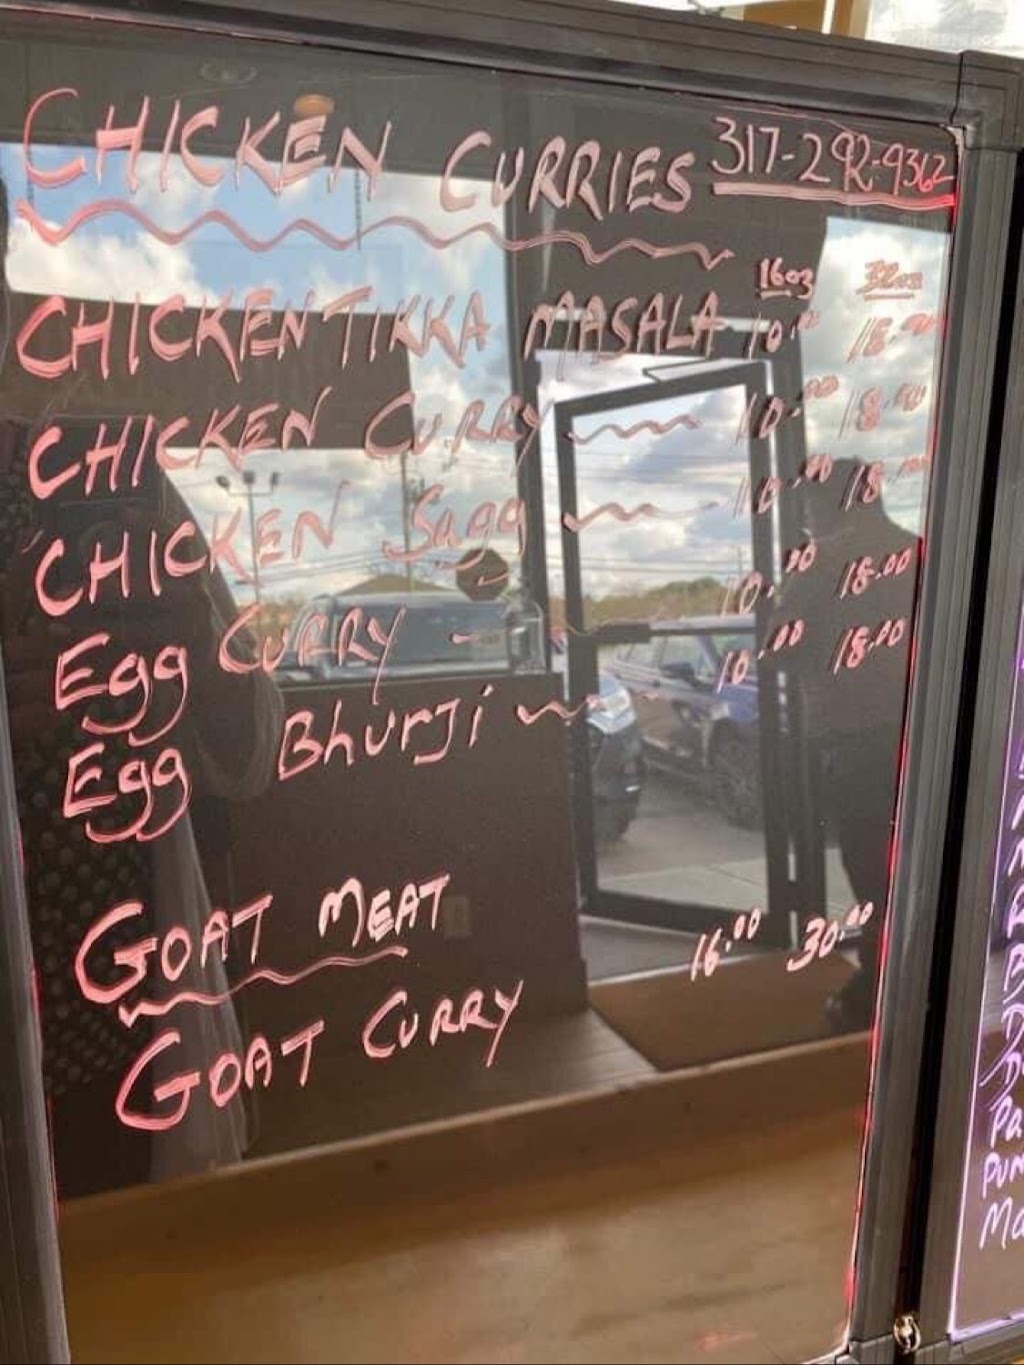 CHICKEN CURRIES 317-292-9362
16oz 32oz
CHICKEN TIKKA MASALA 10.00 18.00
CHICKEN CURRY 10.00 18.00
CHICKEN Sagg 10.00 18.00
Egg CURRY - 10.00 18.00
Egg BhurJi 10.00 18.00
GOAT MEAT
GOAT CURRY 16.00 30.00
Pa
PUN
Ma